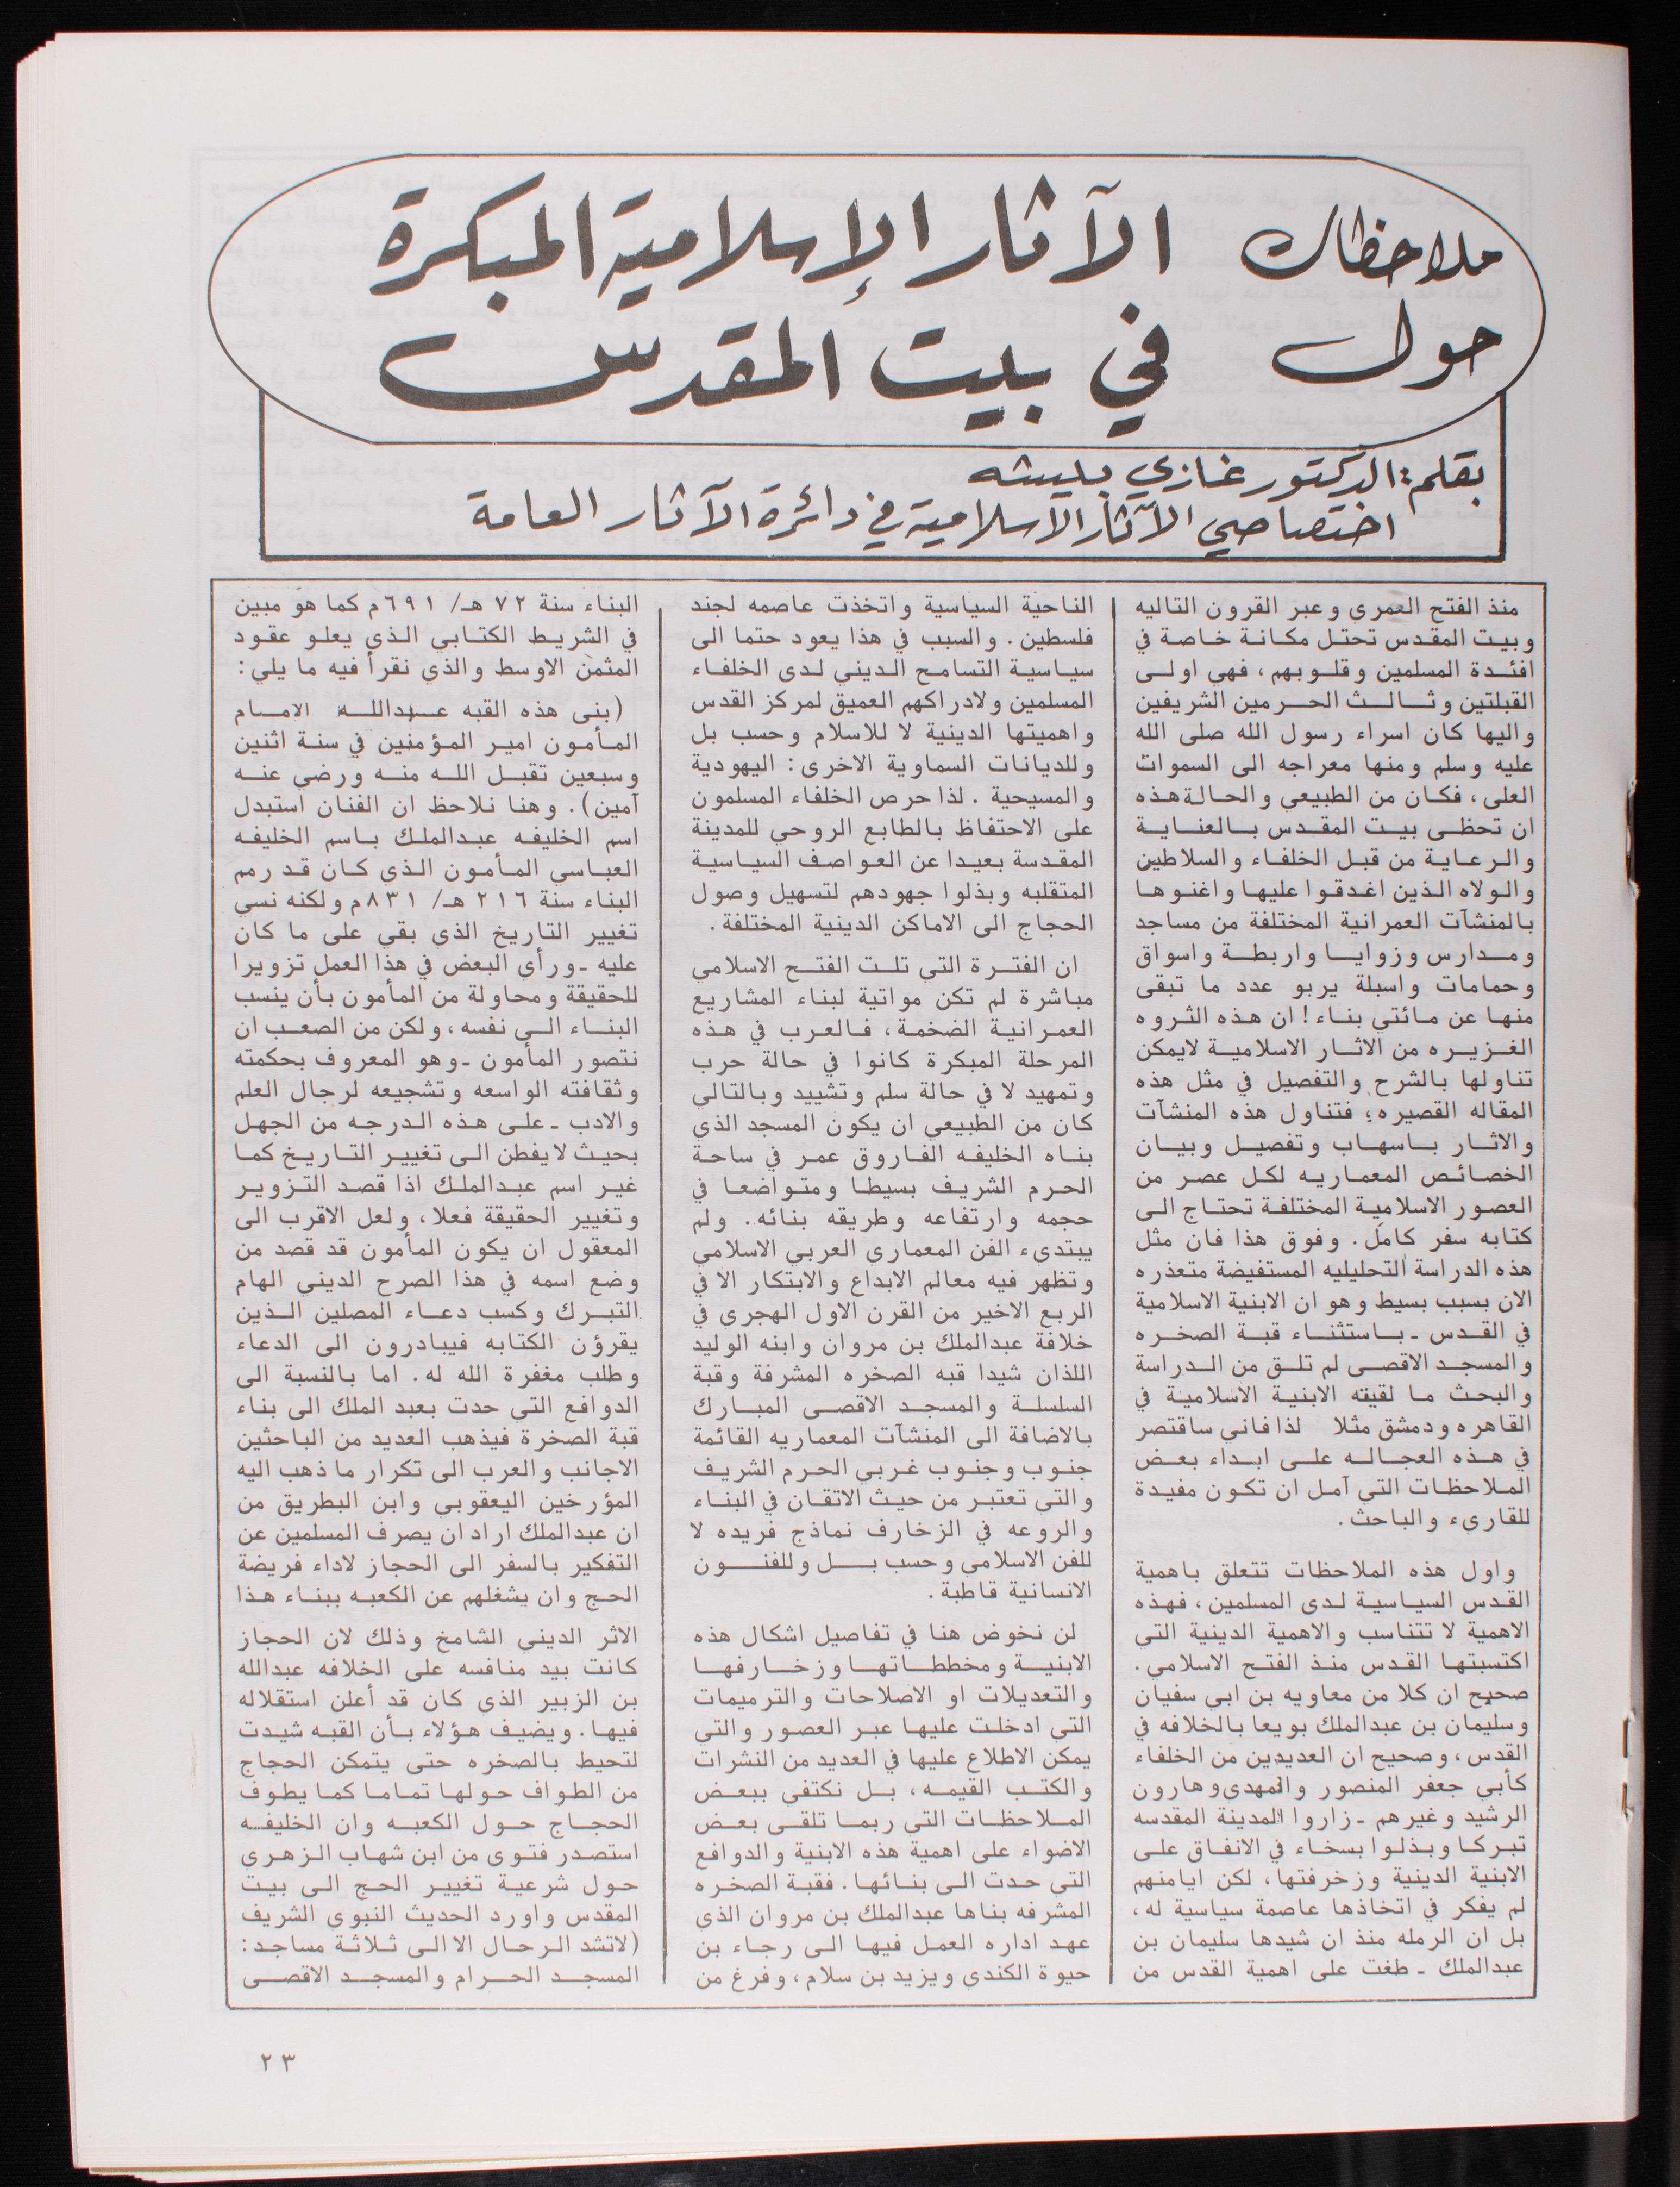 ملاحظات حول
الآثار الإسلامية المبكرة
في بيت المقدس
بقلم: الدكتور غازي بيشه
اختصاصي الآثار الاسلامية في دائرة الآثار العامة
منذ الفتح العمري وعبر القرون التاليه
وبيت المقدس تحتل مكانة خاصة في
افئدة المسلمين وقلوبهم، فهي اولى
القبلتين وثالث الحرمين الشريفين
واليها كان اسراء رسول الله صلى الله
عليه وسلم ومنها معراجه الى السموات
العلى، فكان من الطبيعي والحالة هذه
ان تحظى بيت المقدس بالعناية
والرعاية من قبل الخلفاء والسلاطين
والولاه الذين اغدقوا عليها واغنوها
بالمنشآت العمرانية المختلفة من مساجد
ومدارس وزوايا واربطة واسواق
وحمامات واسبلة يربو عدد ما تبقى
منها عن مائتي بناء! ان هذه الثروه
الغزيره من الاثار الاسلامية لايمكن
تناولها بالشرح والتفصيل في مثل هذه
المقاله القصيره؛ فتناول هذه المنشآت
والاثار باسهاب وتفصيل وبيان
الخصائص المعماريه لكل عصر من
العصور الاسلامية المختلفة تحتاج الى
كتابه سفر كامل. وفوق هذا فان مثل
هذه الدراسة التحليليه المستفيضة متعذره
الان بسبب بسيط وهو ان الابنية الاسلامية
في القدس - باستثناء قبة الصخره
والمسجد الاقصى لم تلق من الدراسة
والبحث ما لقيته الابنية الاسلامية في
القاهره ودمشق مثلا لذا فاني ساقتصر
في هذه العجاله على ابداء بعض
الملاحظات التي آمل ان تكون مفيدة
للقاريء والباحث.
واول هذه الملاحظات تتعلق باهمية
القدس السياسية لدى المسلمين، فهذه
الاهمية لا تتناسب والاهمية الدينية التي
اكتسبتها القدس منذ الفتح الاسلامي.
صحيح ان كلا من معاويه بن ابي سفيان
وسليمان بن عبدالملك بويعا بالخلافه في
القدس، وصحيح ان العديدين من الخلفاء
كأبي جعفر المنصور والمهدي وهارون
الرشيد وغيرهم - زاروا المدينة المقدسه
تبركا وبذلوا بسخاء في الانفاق على
الابنية الدينية وزخرفتها، لكن ايامنهم
لم يفكر في اتخاذها عاصمة سياسية له،
بل ان الرمله منذ ان شيدها سليمان بن
عبدالملك - طغت على اهمية القدس من
الناحية السياسية واتخذت عاصمه لجند
فلسطين. والسبب في هذا يعود حتما الى
سياسية التسامح الديني لدى الخلفاء
المسلمين ولادراكهم العميق لمركز القدس
واهميتها الدينية لا للاسلام وحسب بل
وللديانات السماوية الاخرى: اليهودية
والمسيحية. لذا حرص الخلفاء المسلمون
على الاحتفاظ بالطابع الروحي للمدينة
المقدسة بعيدا عن العواصف السياسية
المتقلبه وبذلوا جهودهم لتسهيل وصول
الحجاج الى الاماكن الدينية المختلفة.
ان الفترة التي تلت الفتح الاسلامي
مباشرة لم تكن مواتية لبناء المشاريع
العمرانية الضخمة، فالعرب في هذه
المرحلة المبكرة كانوا في حالة حرب
وتمهيد لا في حالة سلم وتشييد وبالتالي
كان من الطبيعي ان يكون المسجد الذي
بناه الخليفه الفاروق عمر في ساحة
الحرم الشريف بسيطا ومتواضعا في
حجمه وارتفاعه وطريقه بنائه. ولم
يبتدىء الفن المعماري العربي الاسلامي
وتظهر فيه معالم الابداع والابتكار الا في
الربع الاخير من القرن الاول الهجري في
خلافة عبدالملك بن مروان وابنه الوليد
اللذان شيدا قبه الصخره المشرفة وقبة
السلسلة والمسجد الاقصى المبارك
بالاضافة الى المنشآت المعماريه القائمة
جنوب وجنوب غربي الحرم الشريف
والتي تعتبر من حيث الاتقان في البناء
والروعه في الزخارف نماذج فريده لا
للفن الاسلامي وحسب بل وللفنون
الانسانية قاطبة.
لن نخوض هنا في تفاصيل اشكال هذه
الابنية ومخططاتها وزخارفها
والتعديلات او الاصلاحات والترميمات
التي ادخلت عليها عبر العصور والتي
يمكن الاطلاع عليها في العديد من النشرات
والكتب القيمه، بل نكتفي ببعض
الملاحظات التي ربما تلقى بعض
الاضواء على اهمية هذه الابنية والدوافع
التي حدت الى بنائها. فقبة الصخره
المشرفه بناها عبدالملك بن مروان الذى
عهد اداره العمل فيها الى رجاء بن
حيوة الكندي ويزيد بن سلام، وفرغ من
البناء سنة ٧٢ هـ/ ٦٩١م كما هو مبين
في الشريط الكتابي الذي يعلو عقود
المثمن الاوسط والذي نقرأ فيه ما يلي:
(بنى هذه القبه عبدالله الامام
المأمون امير المؤمنين في سنة اثنين
وسبعين تقبل الله منه ورضي عنه
آمين). وهنا نلاحظ ان الفنان استبدل
اسم الخليفه عبدالملك باسم الخليفه
العباسي المأمون الذي كان قد رمم
البناء سنة ٢١٦ هـ/ ٨٣١م ولكنه نسي
تغيير التاريخ الذي بقي على ما كان
عليه - ورأي البعض في هذا العمل تزويرا
للحقيقة ومحاولة من المأمون بأن ينسب
البناء الى نفسه، ولكن من الصعب ان
نتصور المأمون - وهو المعروف بحكمته
وثقافته الواسعه وتشجيعه لرجال العلم
والادب - على هذه الدرجه من الجهل
بحيث لايفطن الى تغيير التاريخ كما
غير اسم عبدالملك اذا قصد التزوير
وتغيير الحقيقة فعلا، ولعل الاقرب الى
المعقول ان يكون المأمون قد قصد من
وضع اسمه في هذا الصرح الديني الهام
التبرك وكسب دعاء المصلين الذين
يقرؤن الكتابه فيبادرون الى الدعاء
وطلب مغفرة الله له. اما بالنسبة الى
الدوافع التي حدت بعبد الملك الى بناء
قبة الصخرة فيذهب العديد من الباحثين
الاجانب والعرب الى تكرار ما ذهب اليه
المؤرخين اليعقوبي وابن البطريق من
ان عبدالملك اراد ان يصرف المسلمين عن
التفكير بالسفر الى الحجاز لاداء فريضة
الحج وان يشغلهم عن الكعبه ببناء هذا
الاثر الديني الشامخ وذلك لان الحجاز
كانت بيد منافسه على الخلافه عبدالله
بن الزبير الذي كان قد أعلن استقلاله
فيها. ويضيف هؤلاء بأن القبه شيدت
لتحيط بالصخره حتى يتمكن الحجاج
من الطواف حولها تماما كما يطوف
الحجاج حول الكعبه وان الخليفه
استصدر فتوى من ابن شهاب الزهري
حول شرعية تغيير الحج الى بيت
المقدس واورد الحديث النبوي الشريف
(لاتشد الرحال الا الى ثلاثة مساجد:
المسجد الحرام والمسجد الاقصى
٢٣